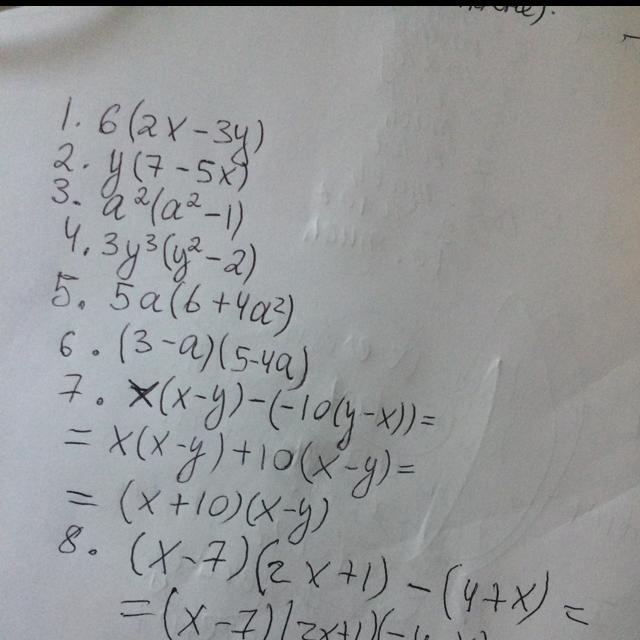 1. 6(2x-3y)
2. y(7-5x)
3. a²(a²-1)
4. 3y³(y²-2)
5. 5a(6+4a²)
6. (3-a)(5-4a)
7. x(x-y)-(-10(y-x))=
= x(x-y)+10(x-y)=
= (x+10)(x-y)
8. (x-7)(2x+1)-(4+x)=
=(x-7)(2x+1)(-